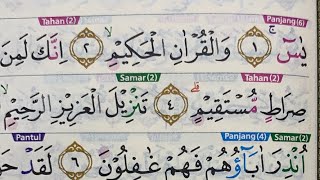 Tahan (2) Panjang (6)
يٰسۤ ۝١ وَالْقُرْاٰنِ الْحَكِيْمِۙ ۝٢ اِنَّكَ لَمِنَ
Samar (2) Tahan (2)
صِرَاطٍ مُّسْتَقِيْمٍۗ ۝٤ تَنْزِيْلَ الْعَزِيْزِ الرَّحِيْمِۙ
Pantul Panjang (4) Samar (2)
اُنْذِرَ اٰبَاۤؤُهُمْ فَهُمْ غٰفِلُوْنَ ۝٦ لَقَدْ